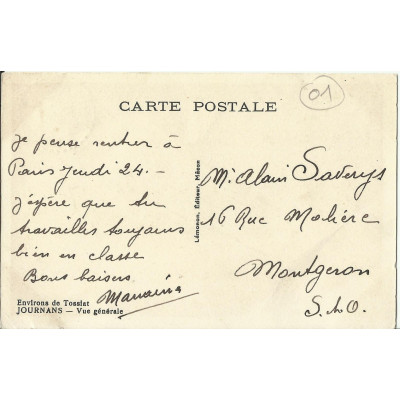 CARTE POSTALE
01
je pense rentrer à
Paris Jeudi 24. —
J'espère que tu
travailles toujours
bien en classe
Bons baisers
Environs de Tossiat
JOURNANS — Vue générale
Lémonon, Éditeur, Mâcon
Mr Alain Saverys
16 Rue Molière
Montgeron
S. & O.